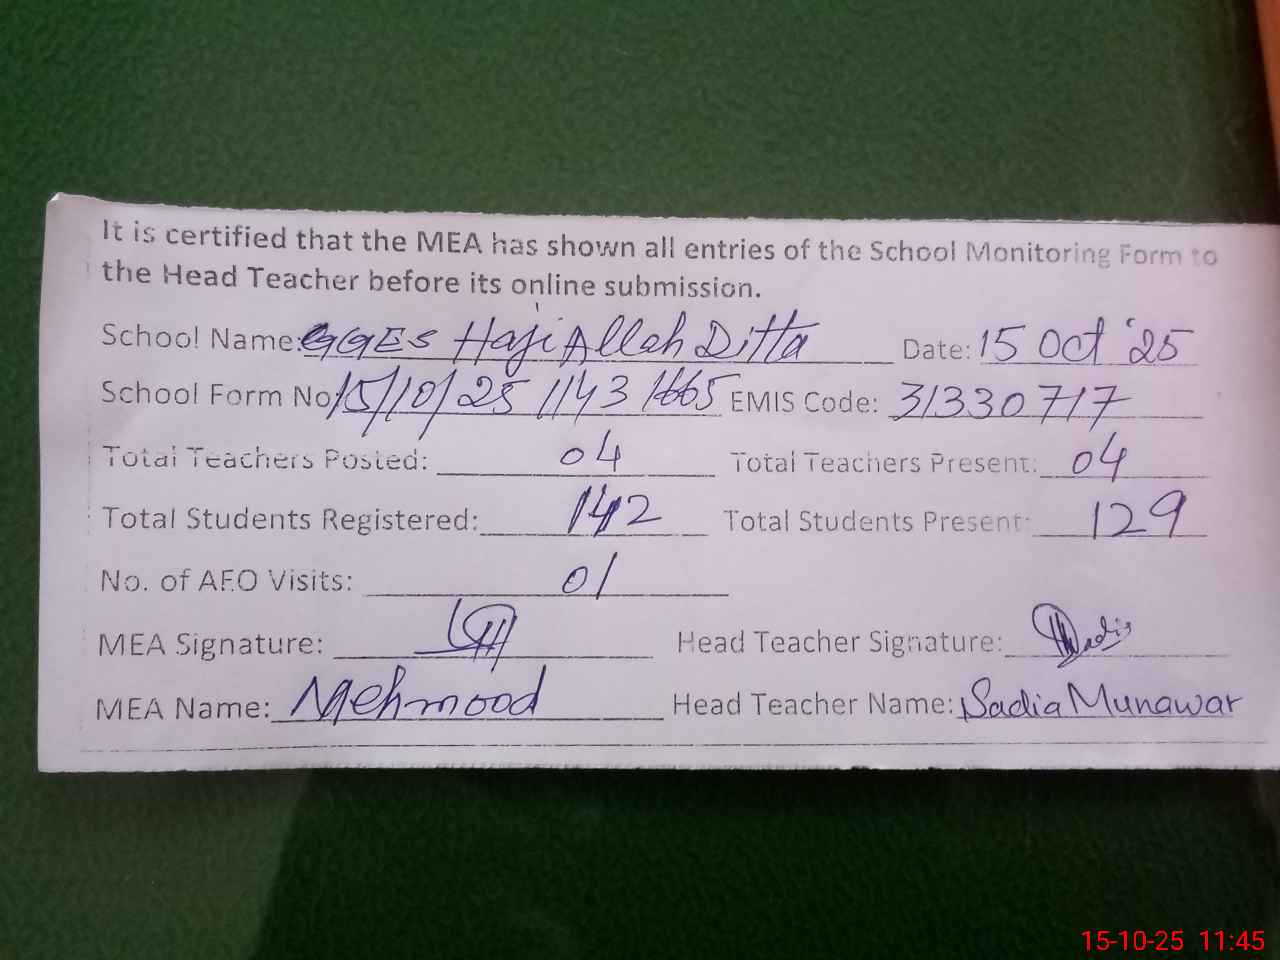 It is certified that the MEA has shown all entries of the School Monitoring Form to
the Head Teacher before its online submission.
School Name: GGES Haji Allah Ditta Date: 15 Oct '25
School Form No 15/10/25 1143 1665 EMIS Code: 31330717
Total Teachers Posted: 04 Total Teachers Present: 04
Total Students Registered: 142 Total Students Present: 129
No. of AEO Visits: 01
MEA Signature: Head Teacher Signature: Sadia
MEA Name: Mehmood Head Teacher Name: Sadia Munawar
15-10-25 11:45